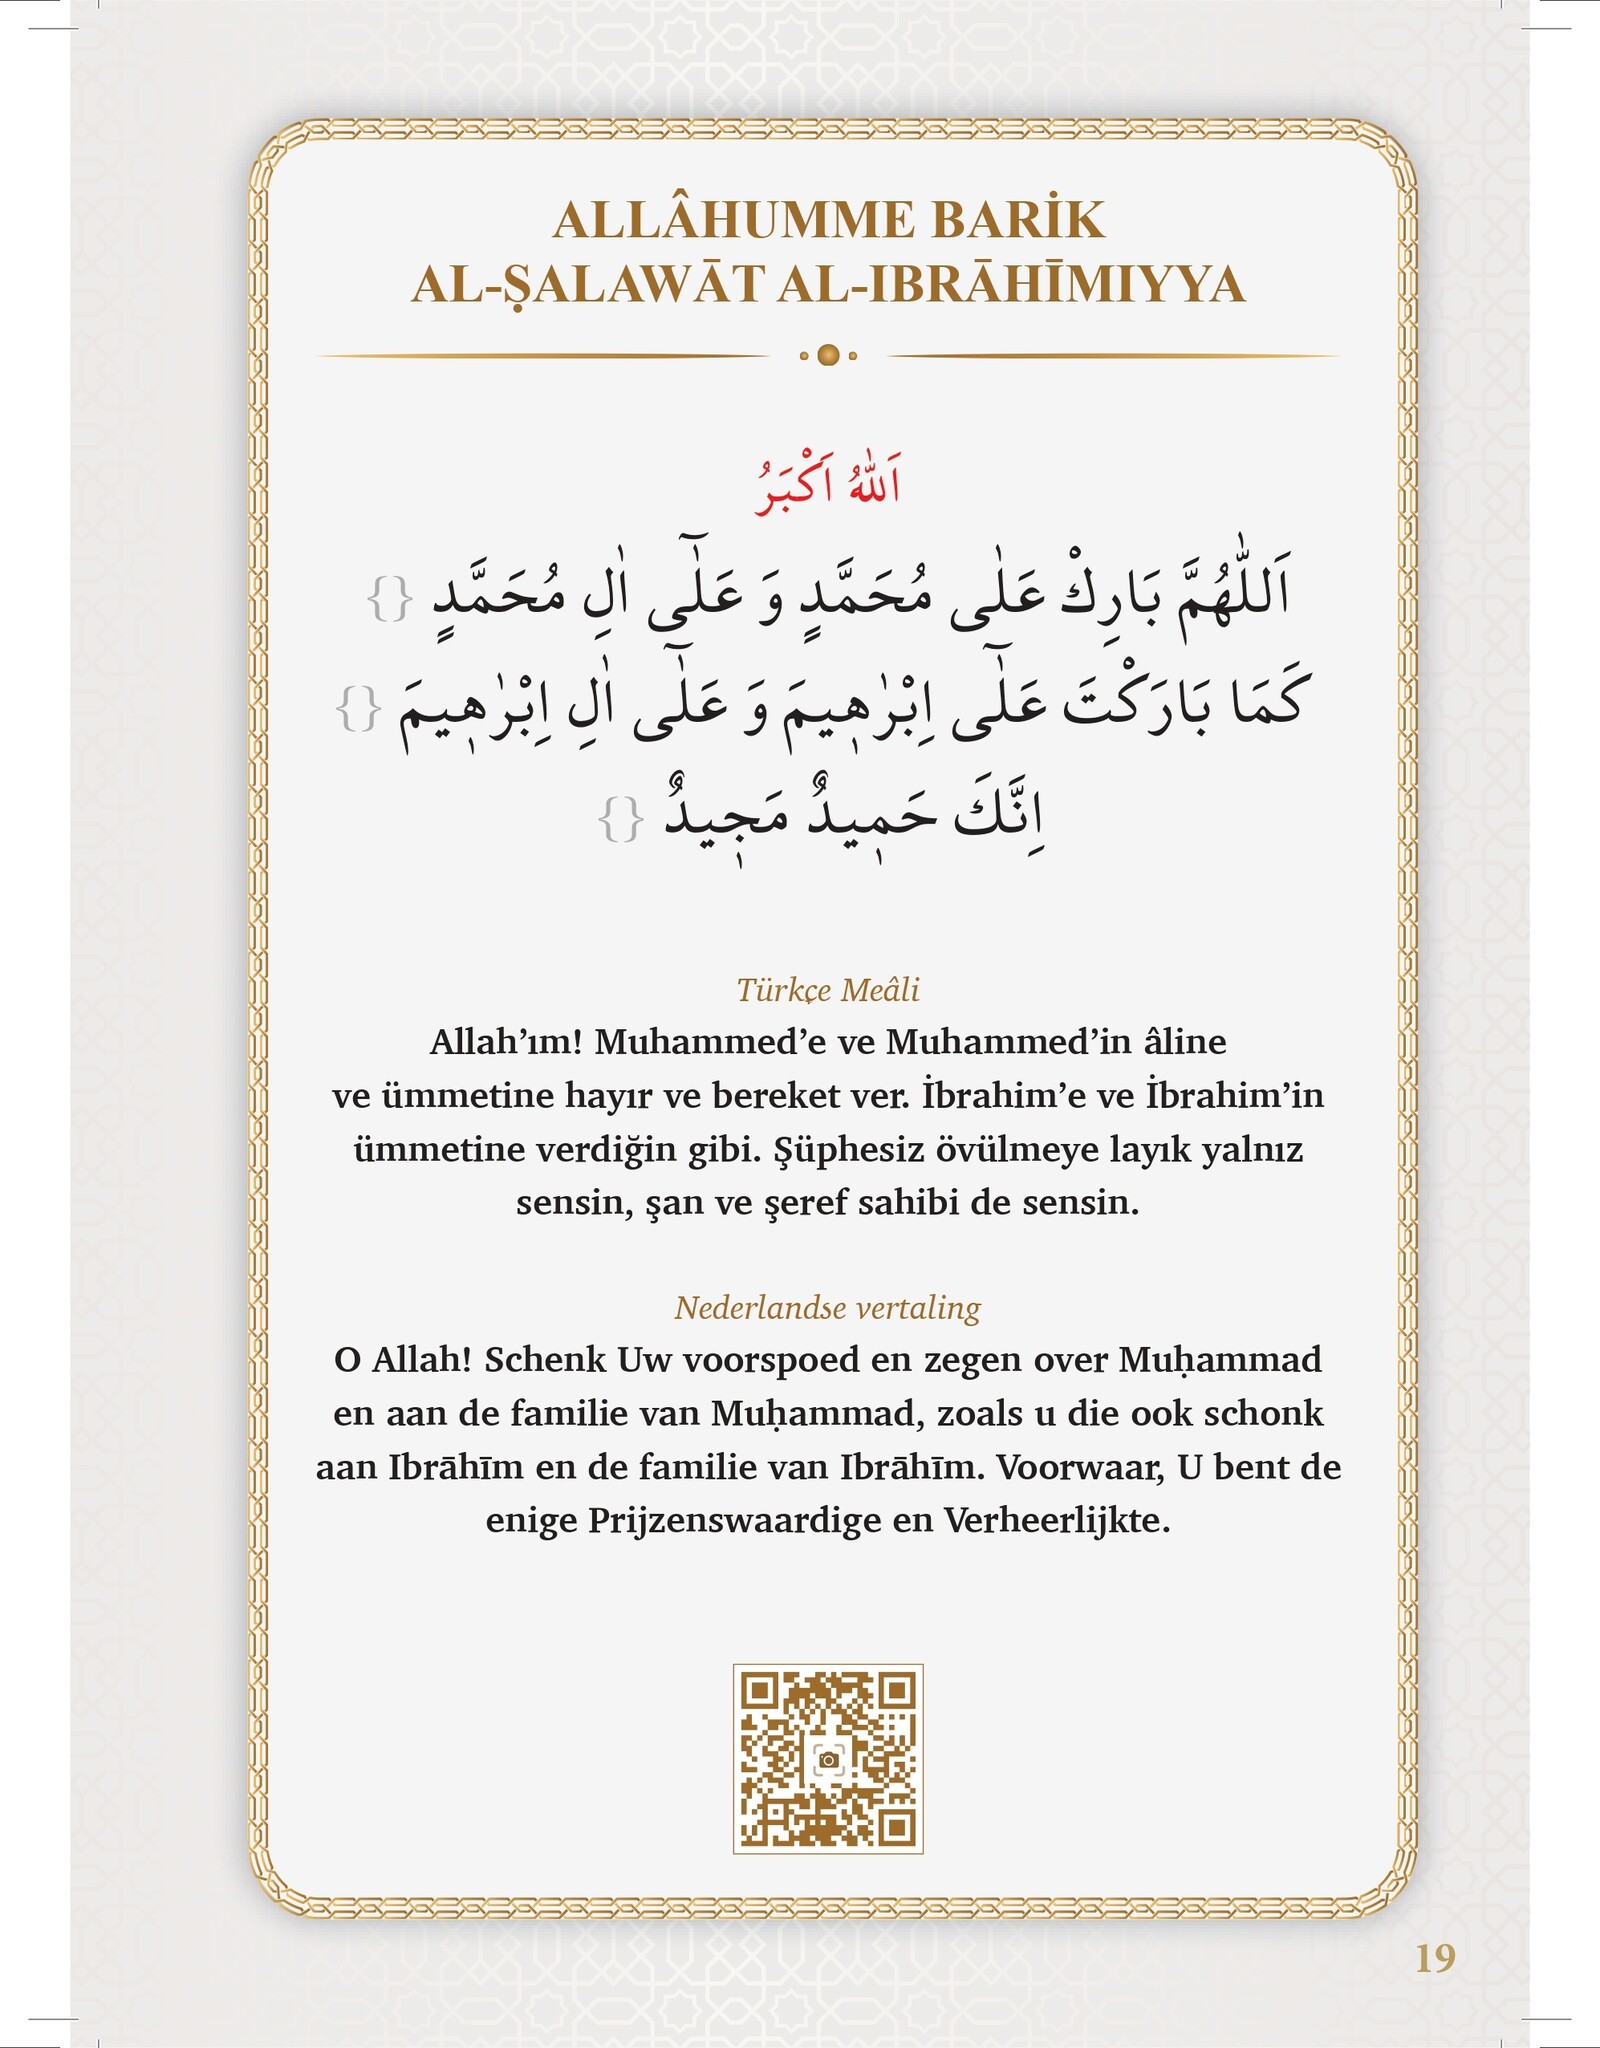 ALLÂHUMME BARİK
AL-ṢALAWĀT AL-IBRĀHĪMIYYA
اَللّٰهُ اَكْبَرُ
اَللّٰهُمَّ بَارِكْ عَلٰى مُحَمَّدٍ وَ عَلٰٓى اٰلِ مُحَمَّدٍ {}
كَمَا بَارَكْتَ عَلٰٓى اِبْرٰهٖيمَ وَ عَلٰٓى اٰلِ اِبْرٰهٖيمَ {}
اِنَّكَ حَمٖيدٌ مَجٖيدٌ {}
Türkçe Meâli
Allah’ım! Muhammed’e ve Muhammed’in âline
ve ümmetine hayır ve bereket ver. İbrahim’e ve İbrahim’in
ümmetine verdiğin gibi. Şüphesiz övülmeye layık yalnız
sensin, şan ve şeref sahibi de sensin.
Nederlandse vertaling
O Allah! Schenk Uw voorspoed en zegen over Muḥammad
en aan de familie van Muḥammad, zoals u die ook schonk
aan Ibrāhīm en de familie van Ibrāhīm. Voorwaar, U bent de
enige Prijzenswaardige en Verheerlijkte.
19